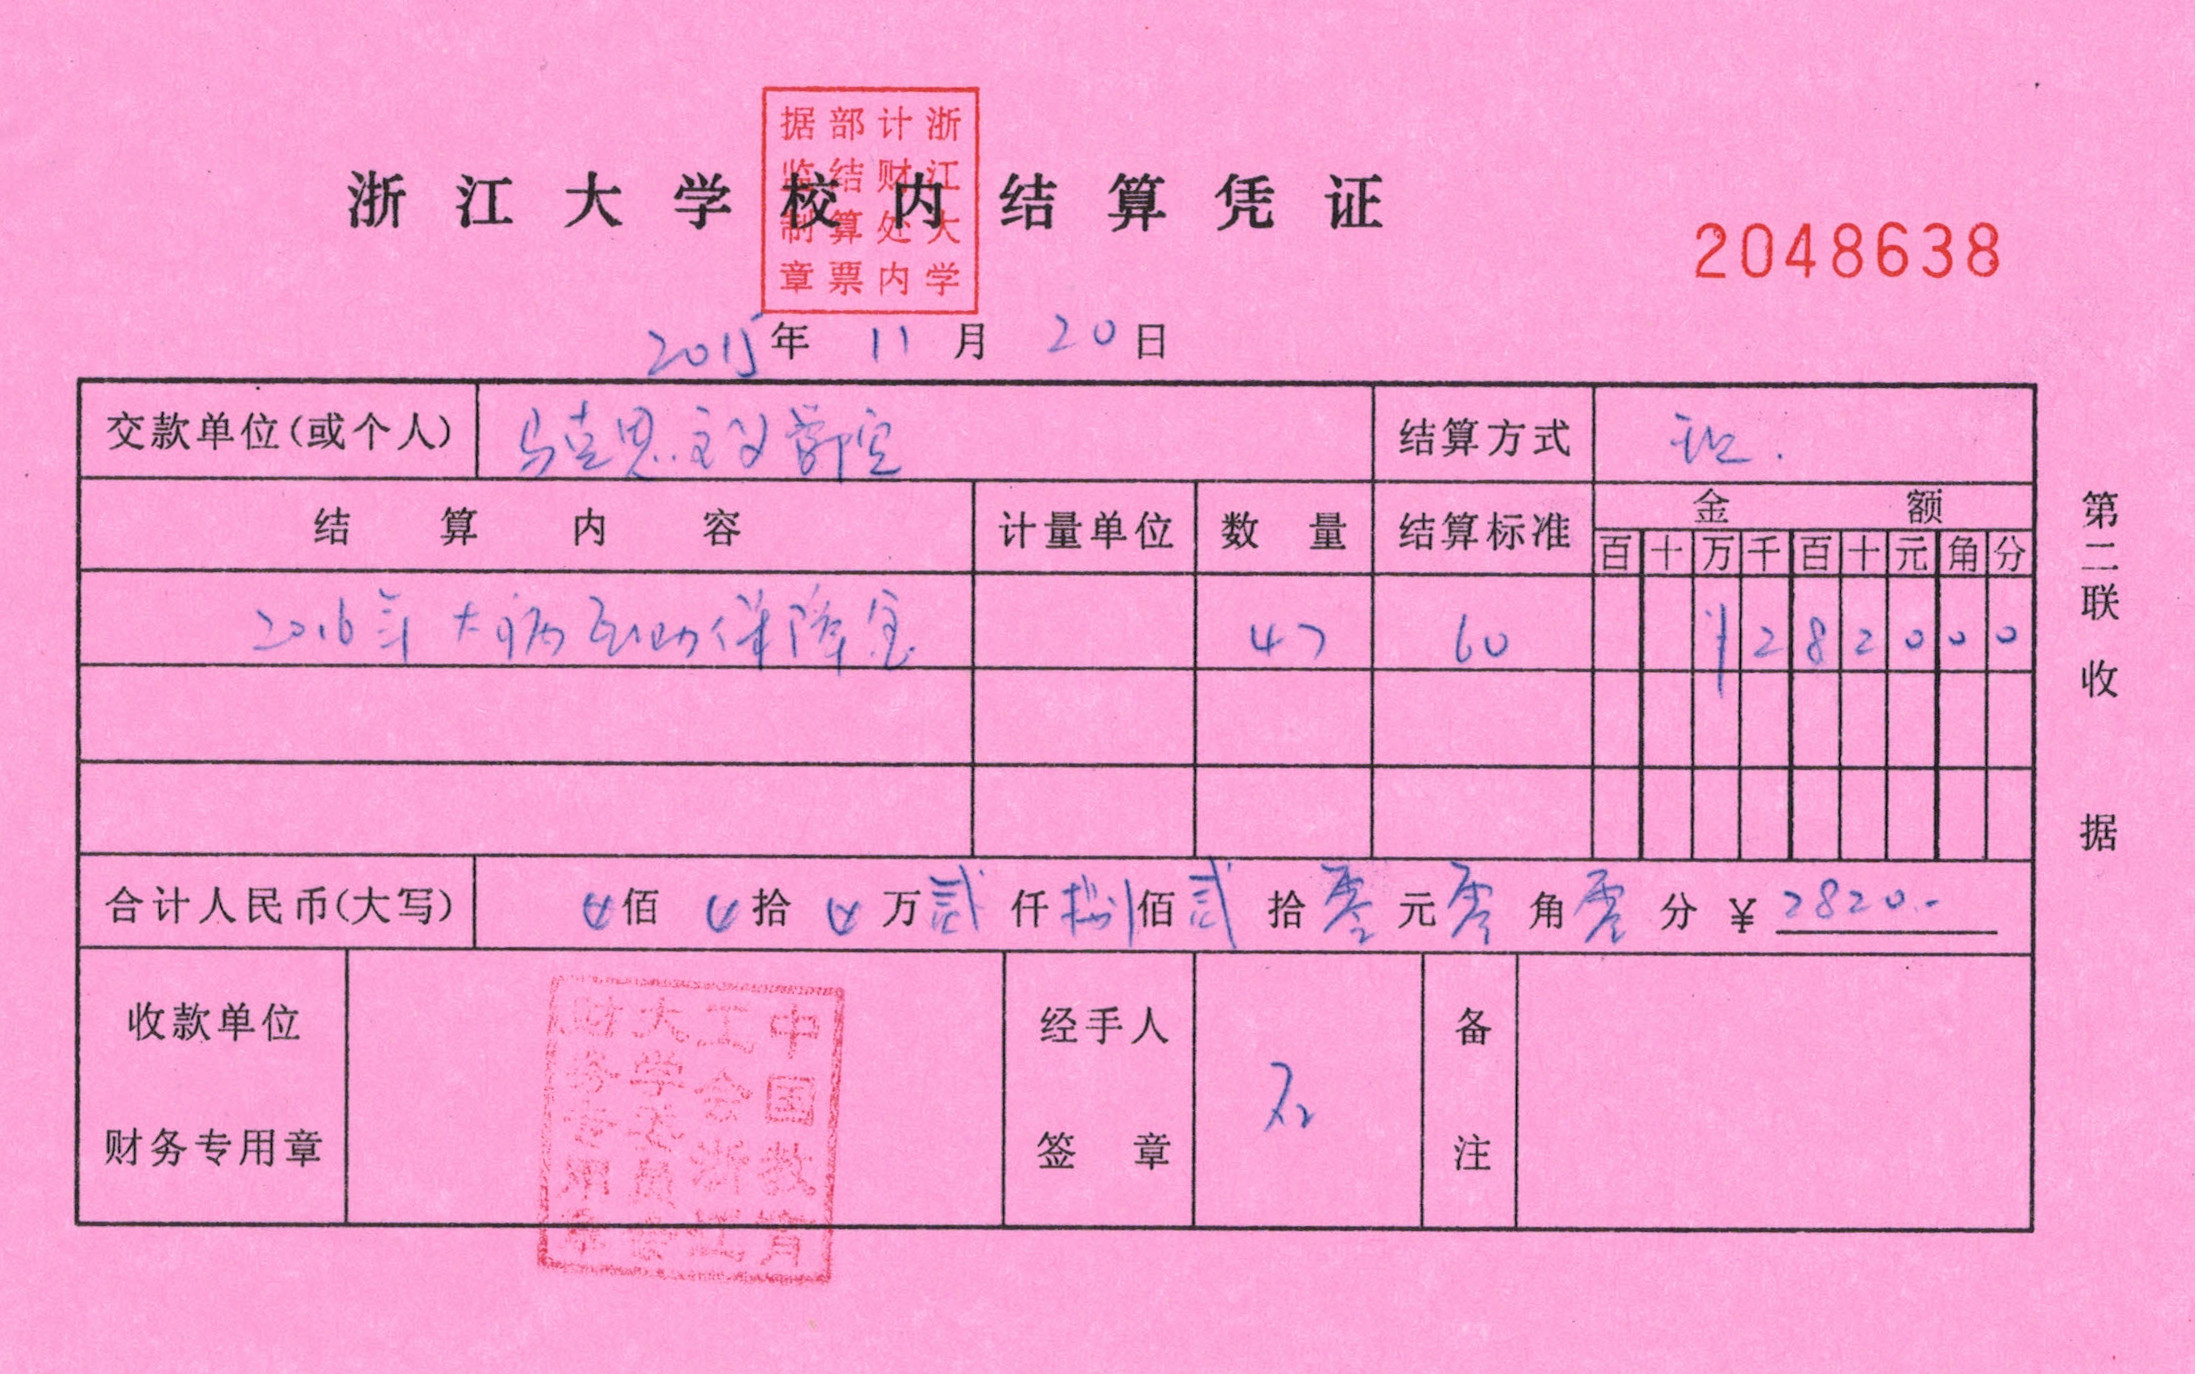 浙江大学校内结算凭证
浙江大学
计财处内
部结算票
据监制章
2048638
2015年 11月 20日
交款单位(或个人) 马克思主义学院 结算方式
结算内容 计量单位 数量 结算标准 金额
百 十 万 千 百 十 元 角 分
2016年大病互助保障金 47 60 ¥ 2 8 2 0 0 0
合计人民币(大写) 佰 拾 万 贰 仟 捌 佰 贰 拾 零 元 零 角 零 分 ¥ 2820.-
收款单位
财务专用章
中国教育
工会浙江
大学委员会
财务专用章
经手人
签章
备
注
第二联 收据